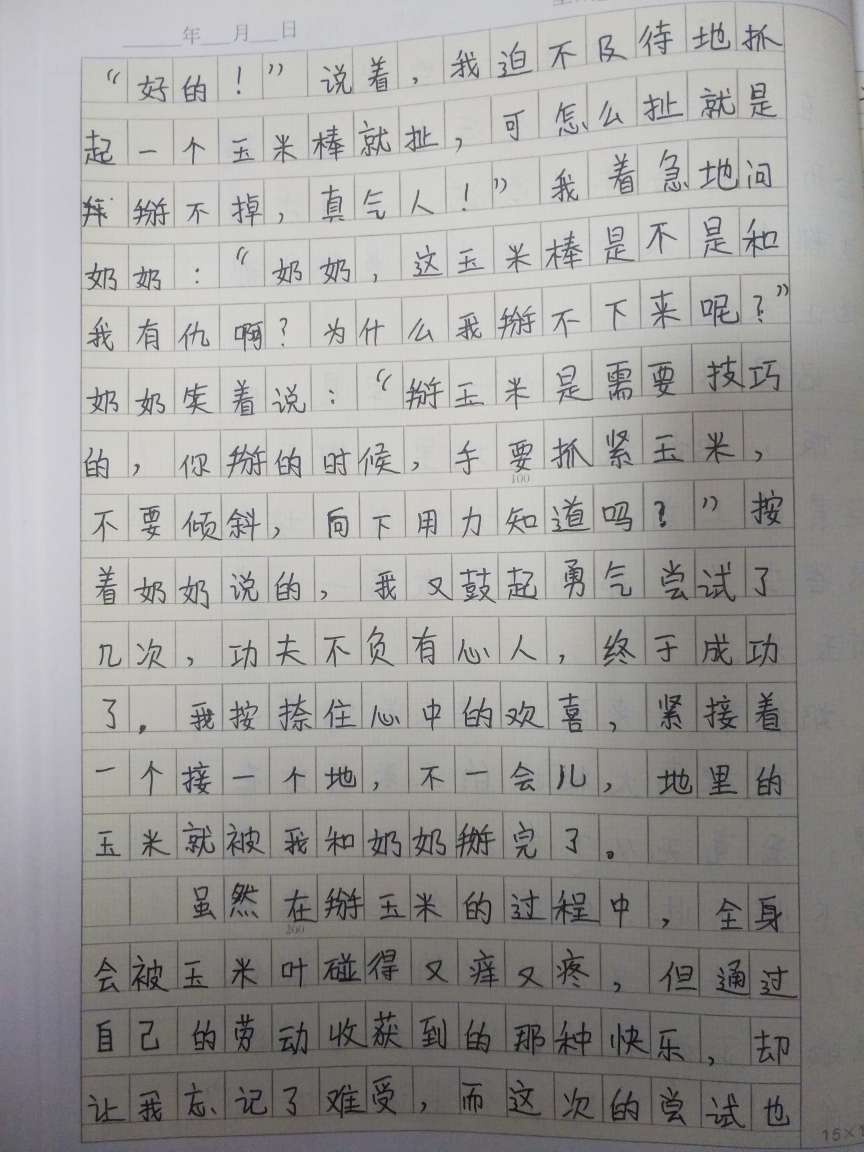 年 月 日
“好的!”说着,我迫不及待地抓
起一个玉米棒就扯,可怎么扯就是
掰不掉,真气人!”我着急地问
奶奶:“奶奶,这玉米棒是不是和
我有仇啊?为什么我掰不下来呢?”
奶奶笑着说:“掰玉米是需要技巧
的,你掰的时候,手要抓紧玉米,
100
不要倾斜,向下用力知道吗?”按
着奶奶说的,我又鼓起勇气尝试了
几次,功夫不负有心人,终于成功
了。我按捺住心中的欢喜,紧接着
一个接一个地,不一会儿,地里的
玉米就被我和奶奶掰完了。
虽然在掰玉米的过程中,全身
200
会被玉米叶碰得又痒又疼,但通过
自己的劳动收获到的那种快乐,却
让我忘记了难受,而这次的尝试也